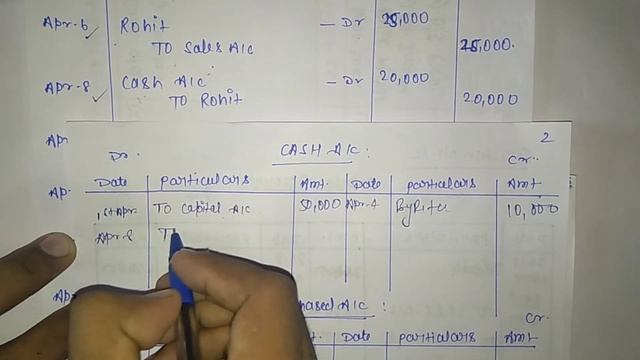 Apr-6 Rohit - Dr 25,000
TO Sales A/c 25,000.
Apr-8 Cash A/c - Dr 20,000
TO Rohit 20,000
Ap
2
Dr. CASH A/C: Cr..
Date Particulars Amt. Date particulars Amt
Ap.
1st Apr. TO Capital A/c 50,000 Apr-4 By Ritu 10,000
Apr-8 T
Ap
hased A/C :
Cr.
t. Date particulars Amt